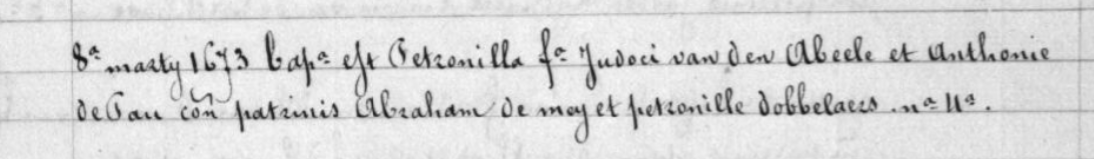 8ª marty 1673 bapª est Petronilla fª Judoci van den Abeele et Anthonie
de Pau coñ patrinis Abraham de mey et petronille dobbelaers . nª 11ª .